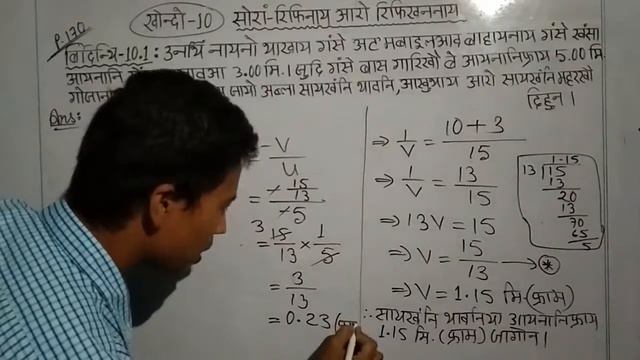 P.130
खोन्दो-10 सोरां-रिफिनाय आरो रिफिखननाय
बिदिन्थि-10.1: उनथिं नायनो थाखाय गंसे अटमबाइलआव बाहायनाय गंसे खंसा
आयनानि 3.00 मि. । जुदि गंसे बास गारिखो बे आयनानिफ्राय 5.00 मि.
लायो अब्ला सायखंनि थावनि, आसुथाय आरो सायखंनि महरखो
दिहुन ।
Ans:
- V / U
= - 15/13 / -5
= 3 15/13 × 1/5
= 3/13
= 0.23
⇒ 1/V = 10+3 / 15
⇒ 1/V = 13/15
⇒ 13V = 15
⇒ V = 15/13 → *
⇒ V = 1.15 मि. (फ्राम)
∴ सायखंनि थाबनिया आयनानिफ्राय
1.15 मि. (फ्राम) जागोन ।
1.15
13 √15
13
20
13
70
65
5